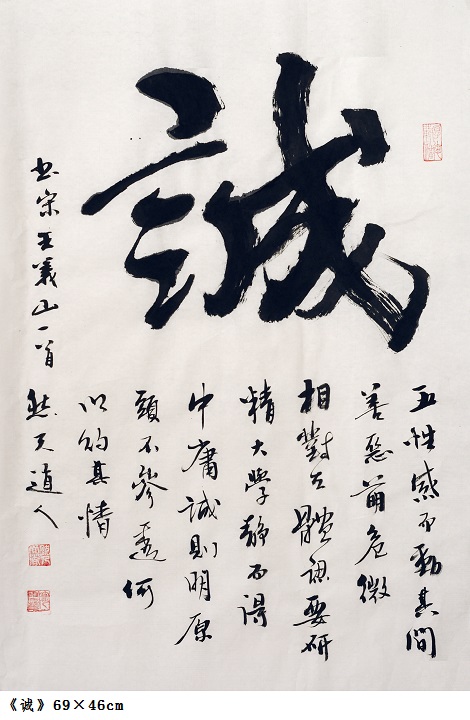 誠
五性感而動其間
善惡萌危微
相對立體認要研
精大學靜而得
中庸誠則明原
頭不參透何
以約其情
书宋王義山一首
道人
《诚》69×46cm